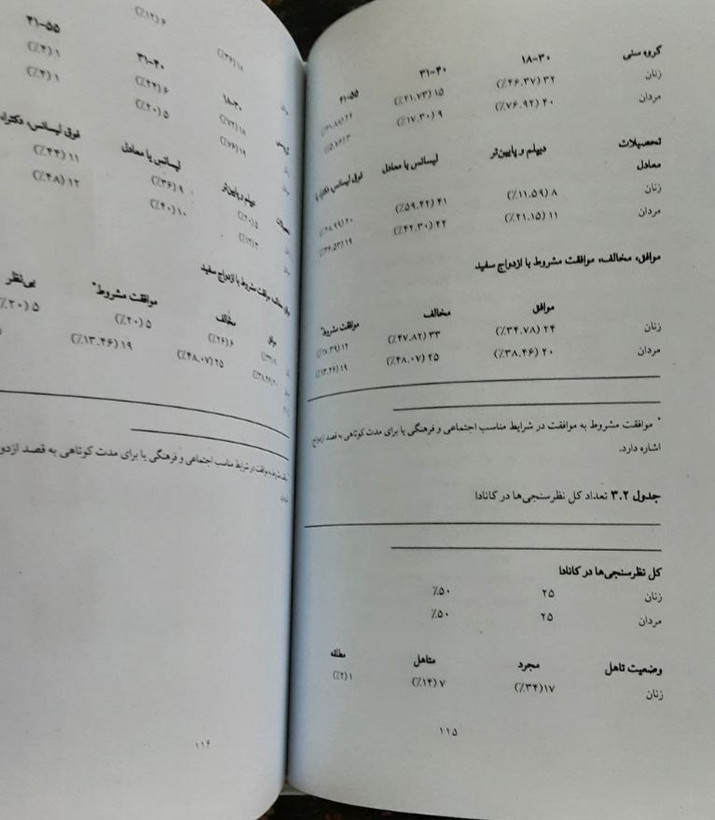 گروه سنی ۱۸-۳۰ ۳۱-۴۰ ۴۱-۵۵
زنان ۳۲ (٪۴۶.۳۷) ۱۵ (٪۲۱.۷۳)
مردان ۴۰ (٪۷۶.۹۲) ۹ (٪۱۷.۳۰)
تحصیلات دیپلم و پایین‌تر لیسانس یا معادل فوق لیسانس، دکترا یا
معادل
زنان ۸ (٪۱۱.۵۹) ۴۱ (٪۵۹.۴۲) ۲۰ (٪۲۸.۹۹)
مردان ۱۱ (٪۲۱.۱۵) ۲۲ (٪۴۲.۳۰) ۱۹ (٪۳۶.۵۳)
موافق، مخالف، موافقت مشروط با ازدواج سفید
موافق مخالف موافقت مشروط*
زنان ۲۴ (٪۳۴.۷۸) ۳۳ (٪۴۷.۸۲) ۱۲ (٪۱۷.۳۹)
مردان ۲۰ (٪۳۸.۴۶) ۲۵ (٪۴۸.۰۷) ۱۹ (٪۱۳.۴۶)
* موافقت مشروط به موافقت در شرایط مناسب اجتماعی و فرهنگی یا برای مدت کوتاهی به قصد ازدواج
اشاره دارد.
جدول ۳.۲ تعداد کل نظرسنجی‌ها در کانادا
کل نظرسنجی‌ها در کانادا
زنان ۲۵ ٪۵۰
مردان ۲۵ ٪۵۰
وضعیت تاهل مجرد متاهل مطلقه
زنان ۱۷(٪۳۴) ۷ (٪۱۴) ۱ (٪۲)
۱۱۵
۶ (٪۱۲)
۱۸ (٪۳۶)
۱۸-۳۰ ۳۱-۴۰ ۴۱-۵۵
۱۸ (٪۷۲) ۶ (٪۲۴) ۱ (٪۴)
۱۹ (٪۷۶) ۵ (٪۲۰) ۱ (٪۴)
دیپلم و پایین‌تر لیسانس یا معادل فوق لیسانس، دکترا
۵ (٪۲۰) ۹ (٪۳۶) ۱۱ (٪۴۴)
۳ (٪۱۲) ۱۰ (٪۴۰) ۱۲ (٪۴۸)
مخالف، موافقت مشروط با ازدواج سفید
موافق مخالف موافقت مشروط* بی‌نظر
۶ (٪۲۶) ۵ (٪۲۰) ۵ (٪۲۰)
۲۰ (٪۳۸.۴۶) ۲۵ (٪۴۸.۰۷) ۱۹ (٪۱۳.۴۶)
موافقت در شرایط مناسب اجتماعی و فرهنگی یا برای مدت کوتاهی به قصد ازدو
۱۱۴